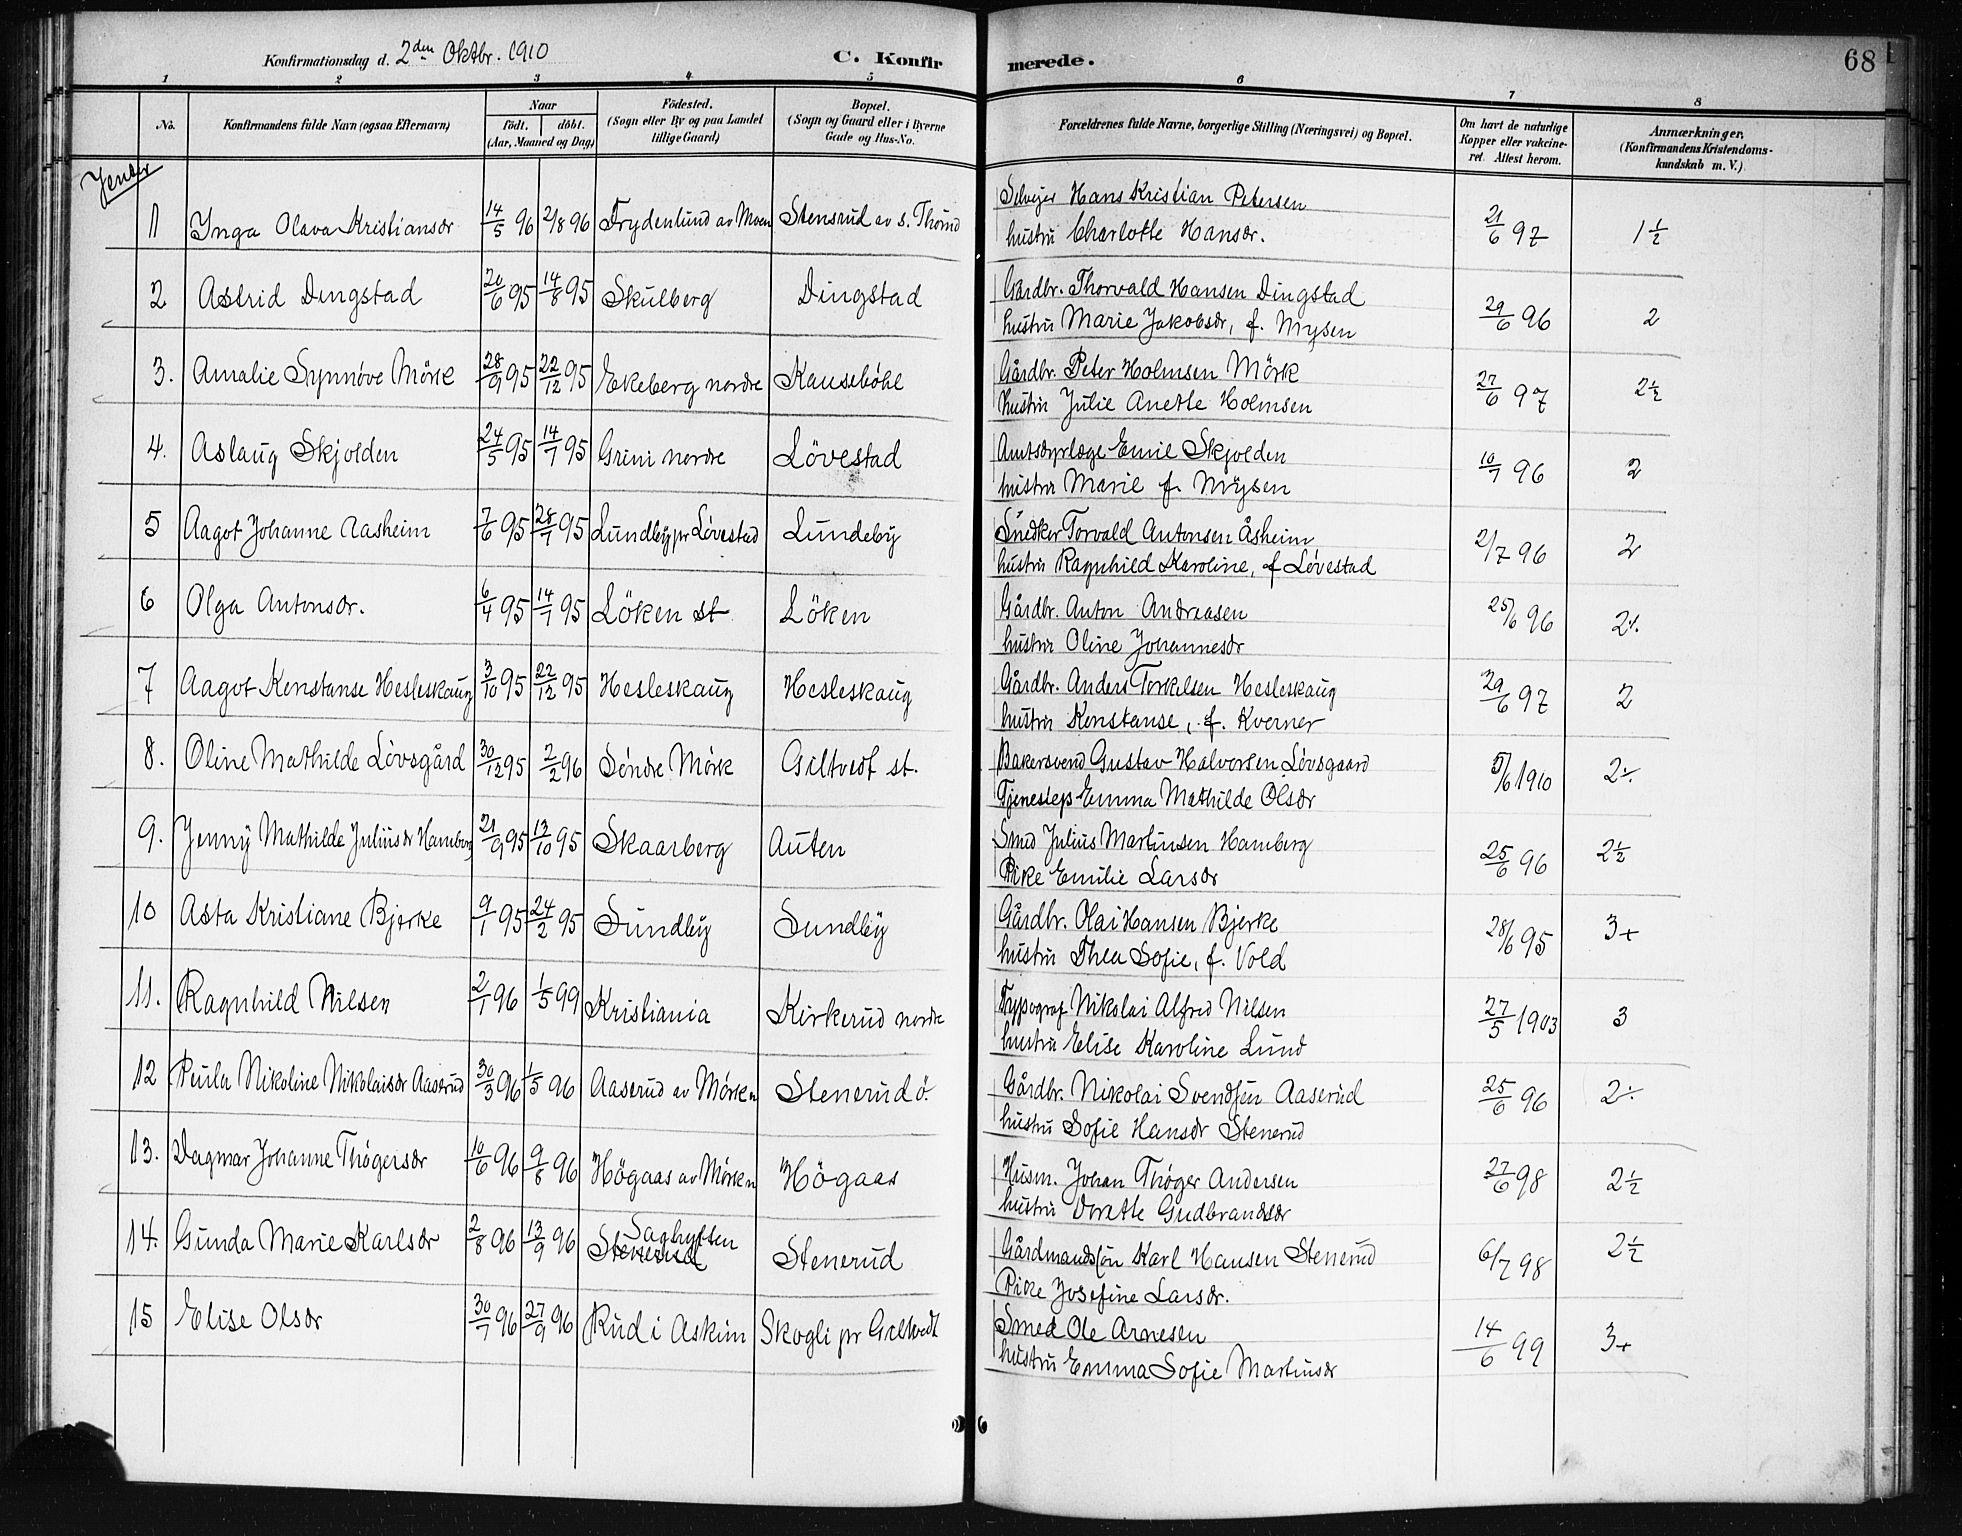 Konfirmationsdag d. 2den Oktbr. 1910
C. Konfirmerede.
68
1 2 3 4 5 6 7 8
No.
Konfirmandens fulde Navn (ogsaa Efternavn)
Naar
födt. döbt.
(Aar, Maaned og Dag)
Födested.
(Sogn eller By og paa Landet tillige Gaard)
Bopæl.
(Sogn og Gaard eller i Byerne Gade og Hus-No.
Forældrenes fulde Navne, borgerlige Stilling (Næringsvei) og Bopæl.
Om havt de naturlige Kopper eller vakcineret. Attest herom.
Anmærkninger.
(Konfirmandens Kristendomskundskab m. V.)
Jenter
1 Inga Olava Kristiansdr 14/5 96 2/8 96 Frydenlund av Moen Stensrud av s. Selveier Hans Kristian Petersen 21/6 97 1½
hustru Charlotte Hansdr.
2 Astrid Dingstad 20/6 95 14/8 95 Skulberg Dingstad Gårdbr. Thorvald Hansen Dingstad 29/6 96 2
hustru Marie Jakobsdr, f. Mysen
3. Amalie Synnöve Mörk 28/9 95 22/12 95 Ekeberg nordre Gårdbr. Peter Holmsen Mörk 27/6 97 2½
hustru Julie Anette Holmsen
4. Aslaug Skjolden 24/5 95 14/7 95 Grini nordre Lövestad Amtsdyrlæge Emil Skjolden 10/7 96 2
hustru Marie f. Mysen
5 Aagot Johanne Aasheim 7/6 95 28/7 95 Lundby pr Lövestad Lundeby Snedker Torvald Antonsen Åsheim 2/7 96 2
hustru Ragnhild Karoline, f Lövestad
6 Olga Antonsdr. 6/4 95 14/7 95 Löken st Löken Gårdbr. Anton Andreasen 25/6 96 2÷
hustru Oline Johannesdr
7 Aagot Konstanse Hesleskaug 3/10 95 22/12 95 Hesleskaug Hesleskaug Gårdbr. Anders Torkelsen Hesleskaug 29/6 97 2
hustru Konstanse, f. Kverner
8. Oline Mathilde Lövsgård 30/12 95 2/2 96 Söndre Mörk Giltvedt st. Bakersvend Gustav Halvorsen Lövsgaard 5/6 1910 2÷
Tjenestep Emma Mathilde Olsdr
9. Jenny Mathilde Juliusdr Hamberg 21/9 95 13/10 95 Skaarberg Auten Smed Julius Martinsen Hamberg 25/6 96 2½
Pike Emilie Larsdr
10 Asta Kristiane Bjerke 9/1 95 24/2 95 Sundby Sundby Gårdbr. Olai Hansen Bjerke 28/6 95 3+
hustru Thea Sofie, f. Vold
11. Ragnhild Nilsen 2/1 96 1/5 99 Kristiania Kirkerud nordre Typograf Nikolai Alfred Nilsen 27/5 1903 3
hustru Elise Karoline Lund
12 Paula Nikoline Nikolaisdr Aaserud 30/3 96 1/5 96 Aaserud av Mörken Stenerud ö. Gårdbr. Nikolai Svendsen Aaserud 25/6 96 2÷
hustru Sofie Hansdr Stenerud
13. Dagmar Johanne Thögersdr 10/6 96 9/8 96 Högaas av Mörken Högaas Husm. Johan Thöger Andersen 27/6 98 2½
hustru Dorette Gudbrandsdr
14. Gunda Marie Karlsdr 2/8 96 13/9 96 Saghytten Stenerud Stenerud Gårdmandssön Karl Hansen Stenerud 6/7 98 2½
Pike Josefine Larsdr.
15 Elise Olsdr 30/7 96 27/9 96 Rud i Askim Skogli pr Giltvedt Smed Ole Arnesen 14/6 99 3+
hustru Emma Sofie Martinsdr